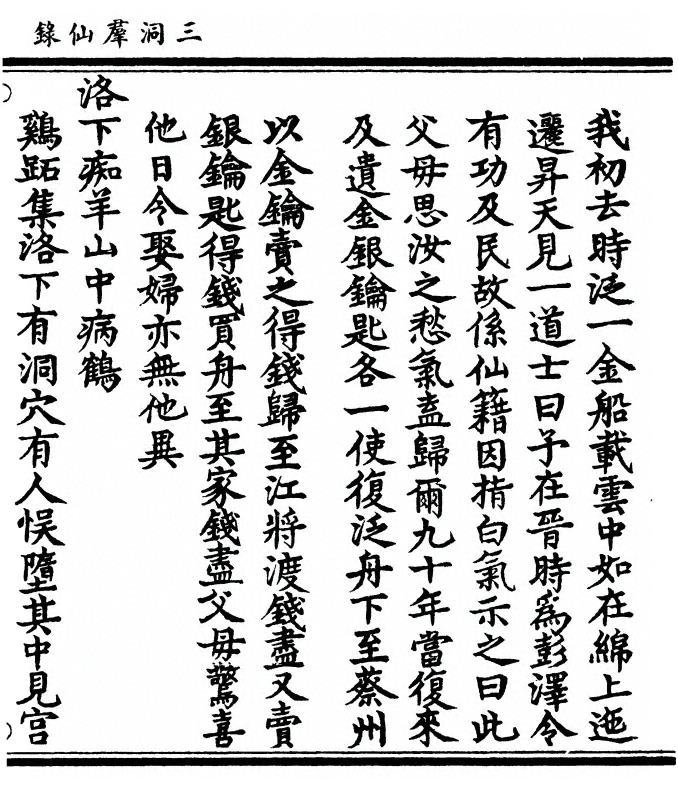 三洞羣仙錄
我初去時泛一金船載雲中如在綿上迤
邐昇天見一道士曰予在晉時爲彭澤令
有功及民故係仙籍因指白氣示之曰此
父毋思汝之愁氣盍歸爾九十年當復來
及遺金銀鑰匙各一使復泛舟下至蔡州
以金鑰賣之得錢歸至江將渡錢盡又賣
銀鑰匙得錢買舟至其家錢盡父毋驚喜
他日令娶婦亦無他異
洛下痴羊山中病鶴
鷄跖集洛下有洞穴有人悮墮其中見宫